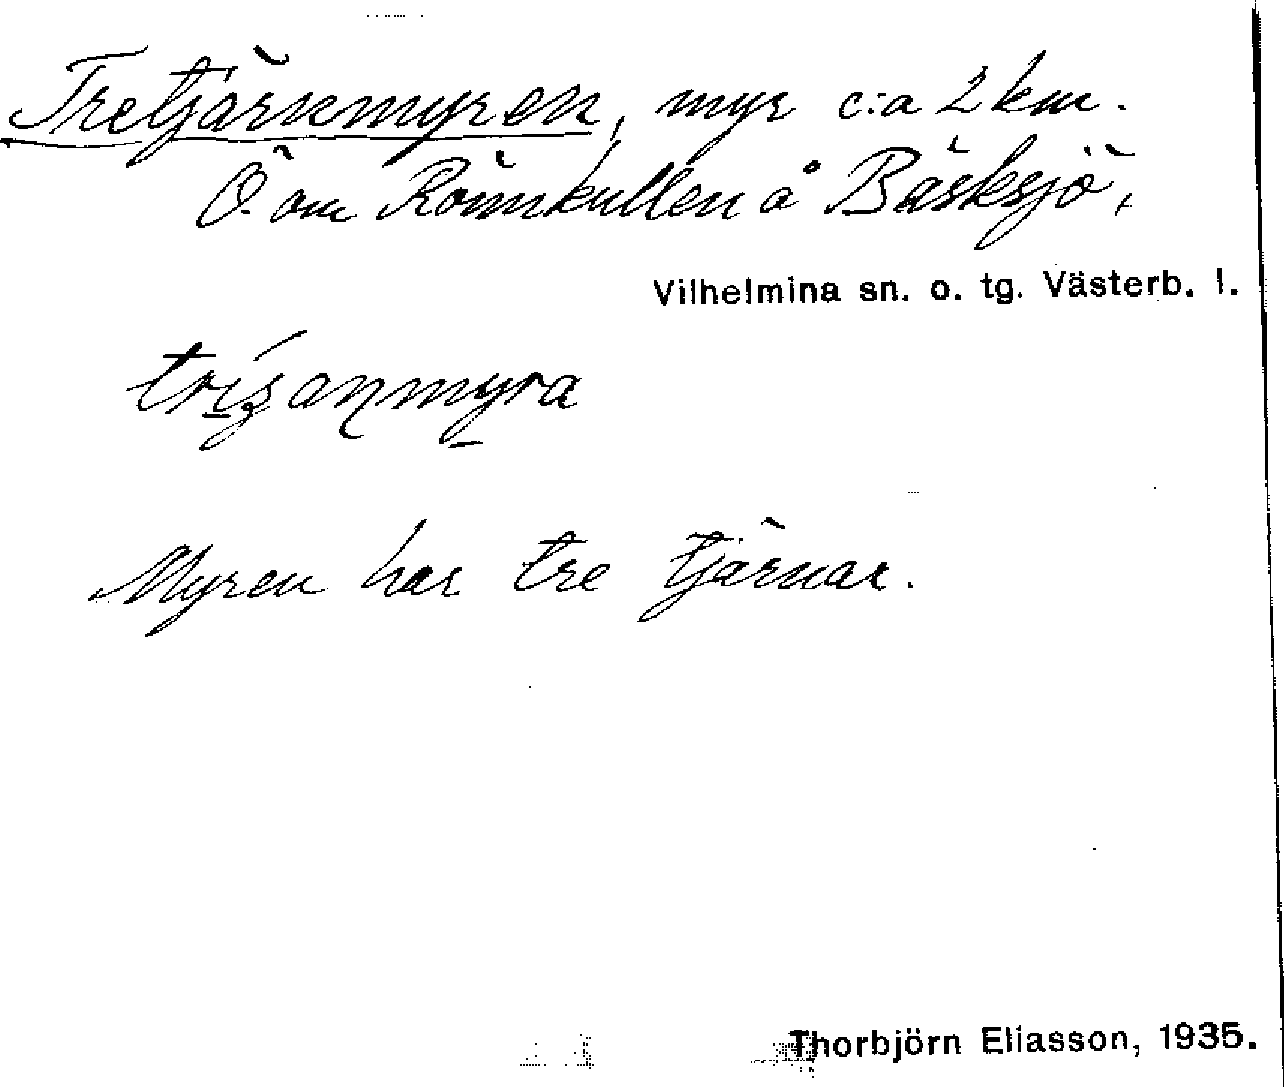 Tretjärnmyren, myr c:a 2 km.
Ö. om Rönnkullen å Bäsksjö,
Vilhelmina sn. o. tg. Västerb. l.
Myren har tre tjärnar.
Thorbjörn Eliasson, 1935.